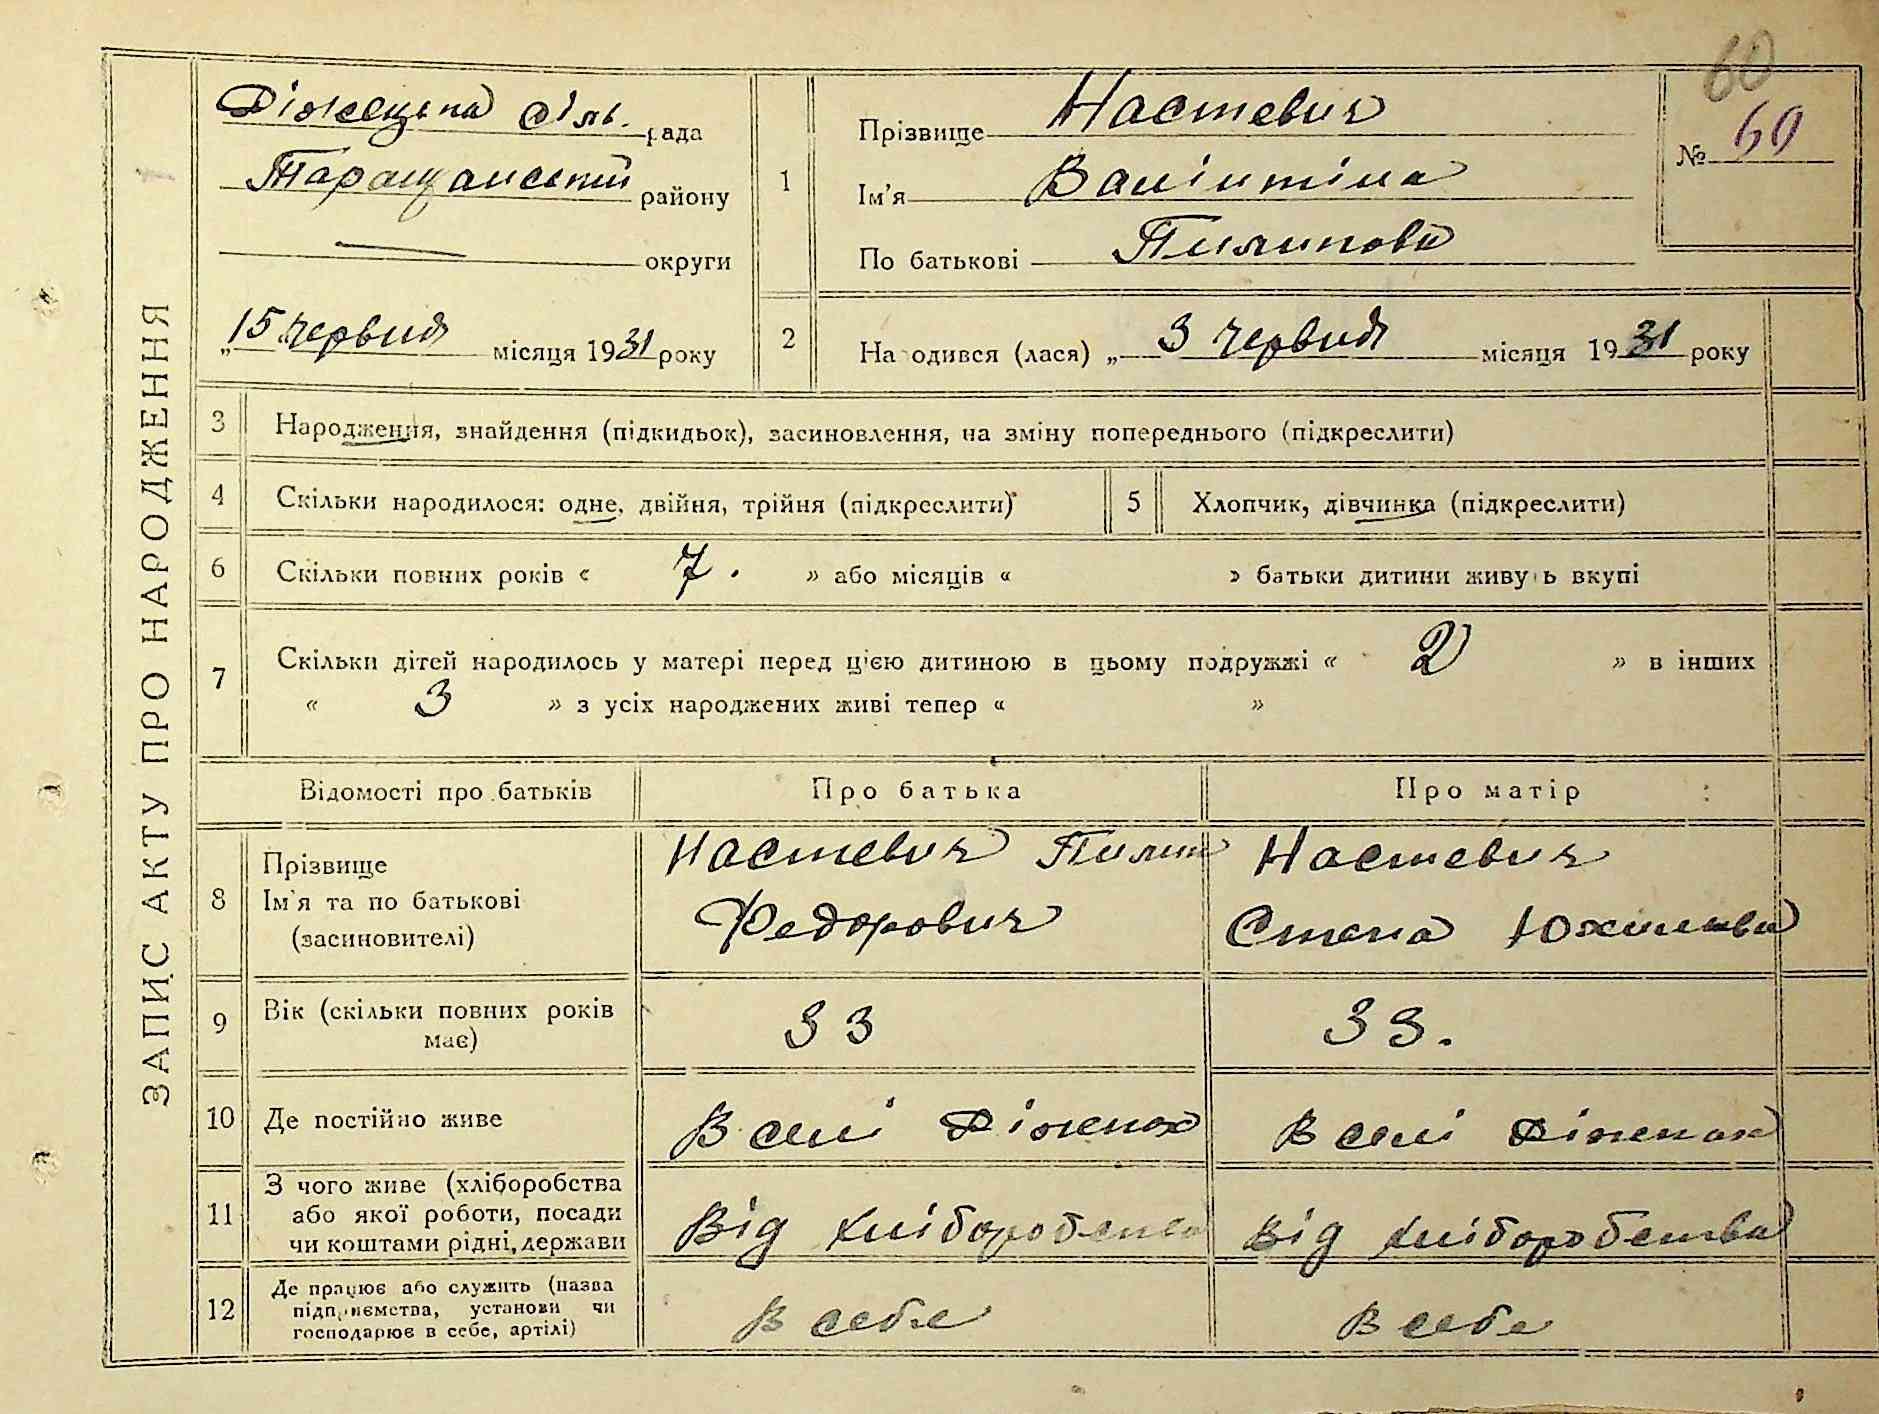 ЗАПИС АКТУ ПРО НАРОДЖЕННЯ
60
№ 60
сіль. рада
Таращанський району
— округи
„15 червня місяця 1931 року
1 Прізвище Настевич
Ім'я Валінтіна
По батькові Пилипова
2 На одився (лася) „ 3 червня місяця 1931 року
3 Народження, знайдення (підкидьок), засиновлення, на зміну попереднього (підкреслити)
4 Скільки народилося: одне, двійня, трійня (підкреслити)
5 Хлопчик, дівчинка (підкреслити)
6 Скільки повних років « 7. » або місяців « » батьки дитини живу ь вкупі
7 Скільки дітей народилось у матері перед цією дитиною в цьому подружжі « 2 » в інших
« 3 » з усіх народжених живі тепер « »
Відомості про батьків Про батька Про матір
8 Прізвище
Ім'я та по батькові
(засиновителі)
Настевич Пилип
Федорович
Настевич
Юхимова
9 Вік (скільки повних років
має)
33
33.
10 Де постійно живе
В селі
В селі
11 З чого живе (хліборобства
або якої роботи, посади
чи коштами рідні, держави
Від хліборобства
Від хліборобства
12 Де працює або служить (назва
підприємства, установи чи
господарює в себе, артілі)
В себе
В себе